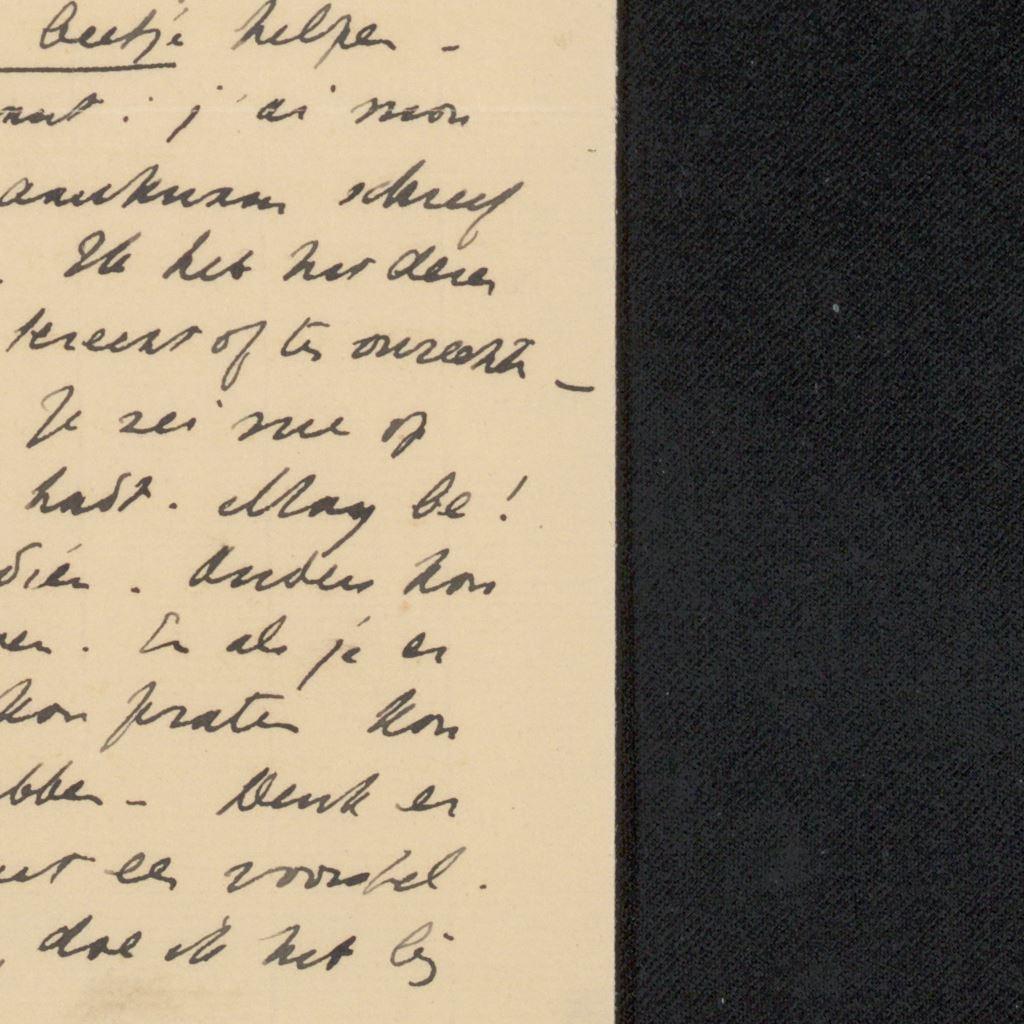 beetje helpen -
: j'ai mon
aankwam schreef
. Ik heb het deze
terecht of ten onrechte -
Je zei me op
hadt. May be!
dien. Anders kon
en. En als je er
kon praten kon
bben - Denk er
een voorstel.
, doe ik het bij